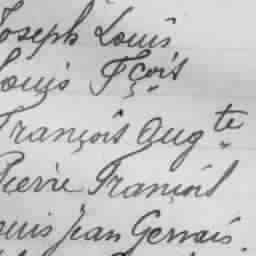 Joseph Louis
Louis Fçois
François Augte
Pierre François
Louis Jean Gervais.